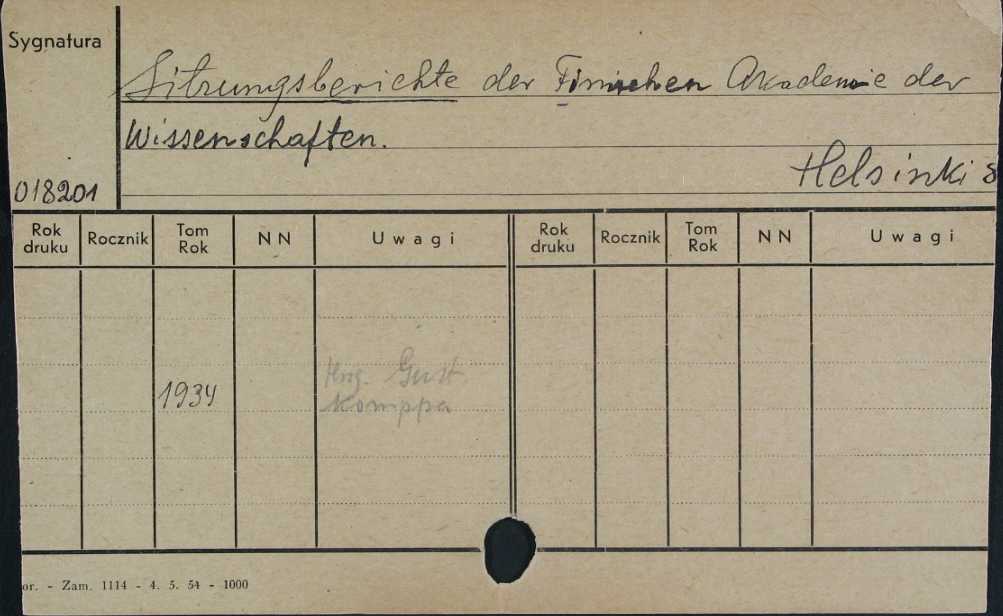 Sygnatura
Sitzungsberichte der Finnischen Akademie der
Wissenschaften.
Helsinki 8
018201
Rok druku Rocznik Tom Rok NN Uwagi Rok druku Rocznik Tom Rok NN Uwagi
Hrsg. Gust.
1934 Komppa
or. - Zam. 1114 - 4. 5. 54 - 1000